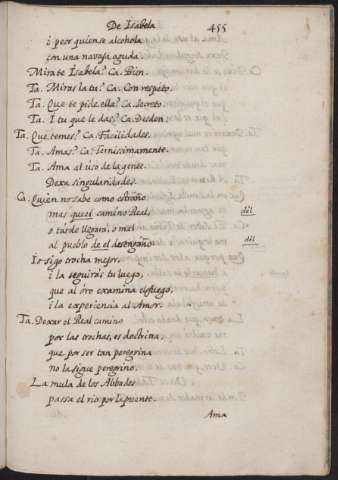 De Isabela
455
i peor quien se alcohola
con una navaja aguda.
Mirate Isabela? Ca. Bien.
Ta. Miras la tu? Ca. Con respeto.
Ta. Que te pide ella? Ca. Secreto.
Ta. I tu que le das? Ca. Desden.
Ta. Que temes? Ca. Facilidades.
Ta. Amas? Ca. Ternissimamente.
Ta. Ama al uso de la gente.
Dexa singularidades.
Ca. Quien no sabe como estraño
mas que el camino Real, del
o tarde llegará, o mal
al pueblo de el desengaño. del
Io sigo trocha mejor,
i la seguirás tu luego,
que al oro examina el fuego,
i la experiencia al Amor.
Ta. Dexar el Real camino
por las trochas, es doctrina,
que por ser tan peregrina
no la sigue peregrino.
La mula de los Abbades
passa el rio por la puente.
Ama